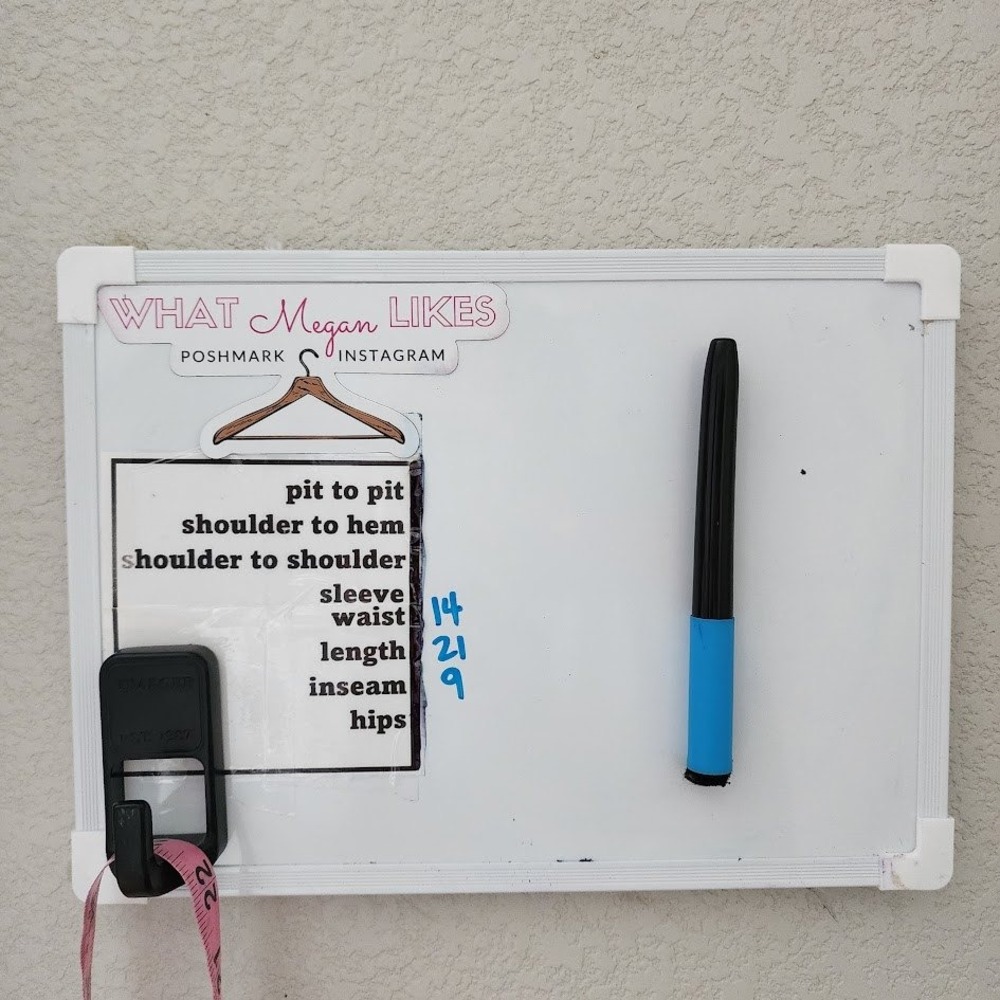 WHAT Megan LIKES
POSHMARK INSTAGRAM
pit to pit
shoulder to hem
shoulder to shoulder
sleeve
waist 14
length 21
inseam 9
hips
22